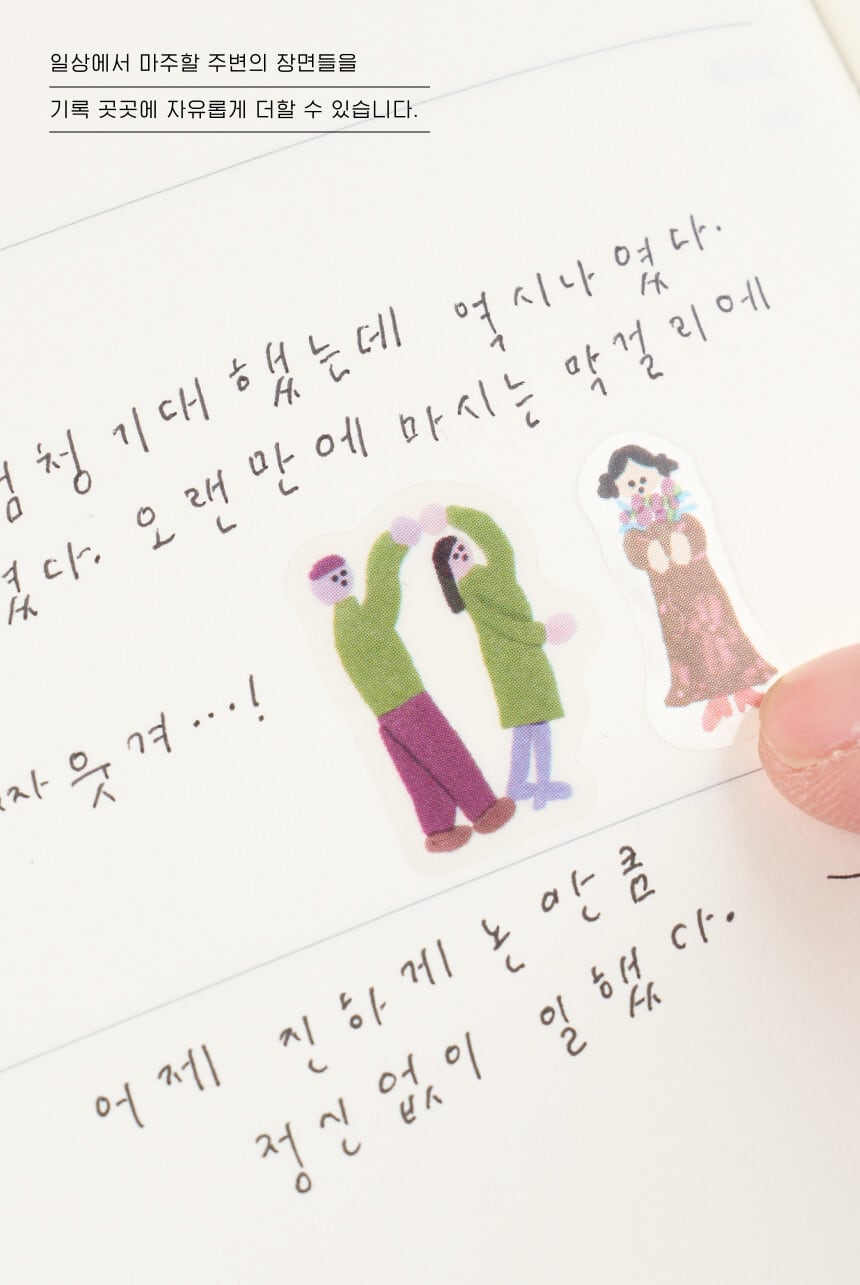 일상에서 마주할 주변의 장면들을
기록 곳곳에 자유롭게 더할 수 있습니다.
엄청 기대 했는데 역시나 였다.
였다. 오랜만에 마시는 막걸리에
웃겨...!
어제 진하게 논 만큼
정신없이 일했다.